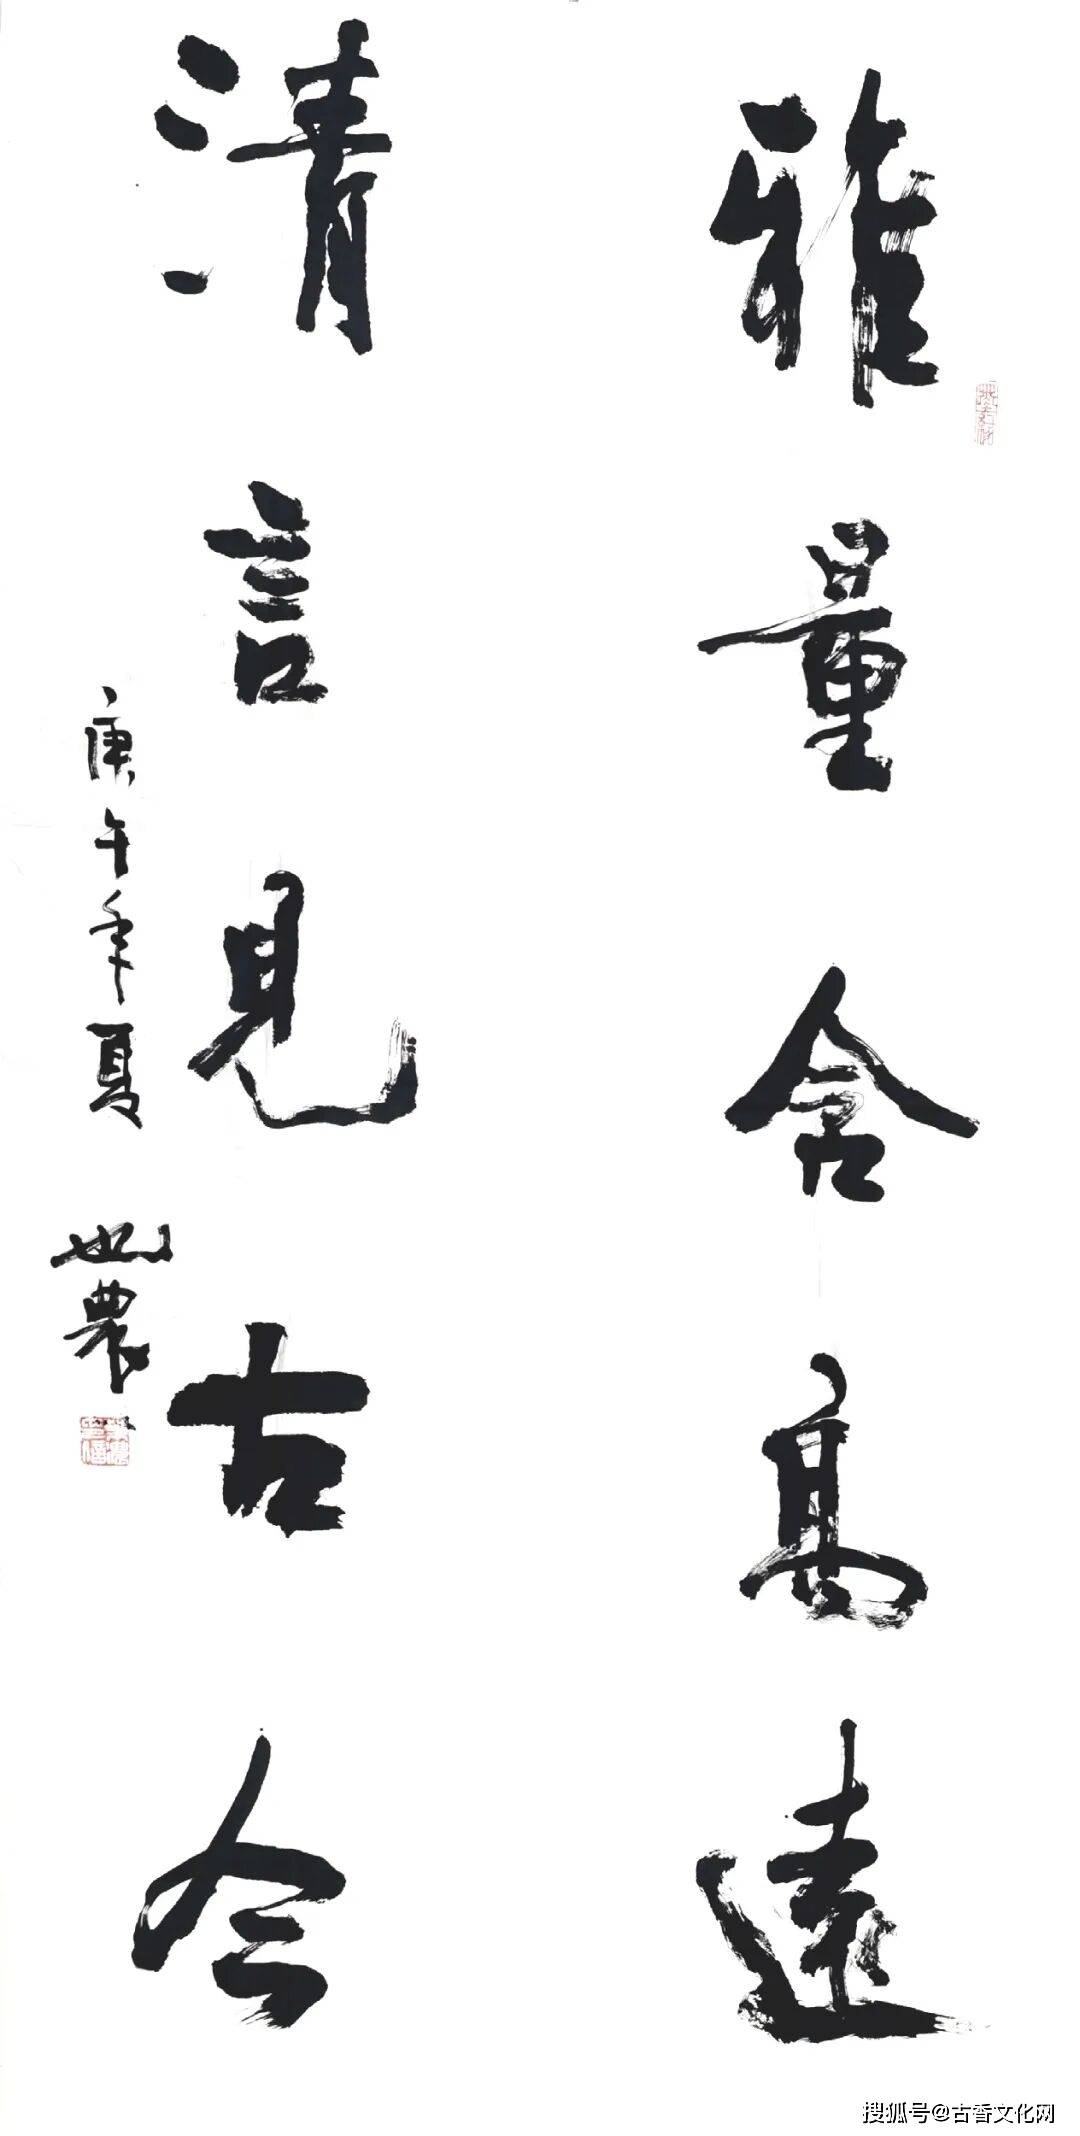 雅量含高遠
清言見古今
庚午年夏
也農
搜狐号@古香文化网